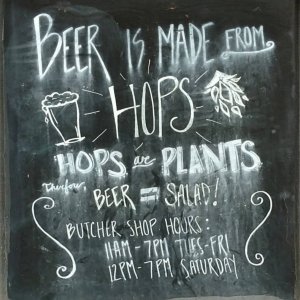 BEER IS MADE FROM
HOPS
HOPS are PLANTS
therefore,
BEER = SALAD!
BUTCHER SHOP HOURS:
11AM-7PM TUES-FRI
12PM-7PM SATURDAY